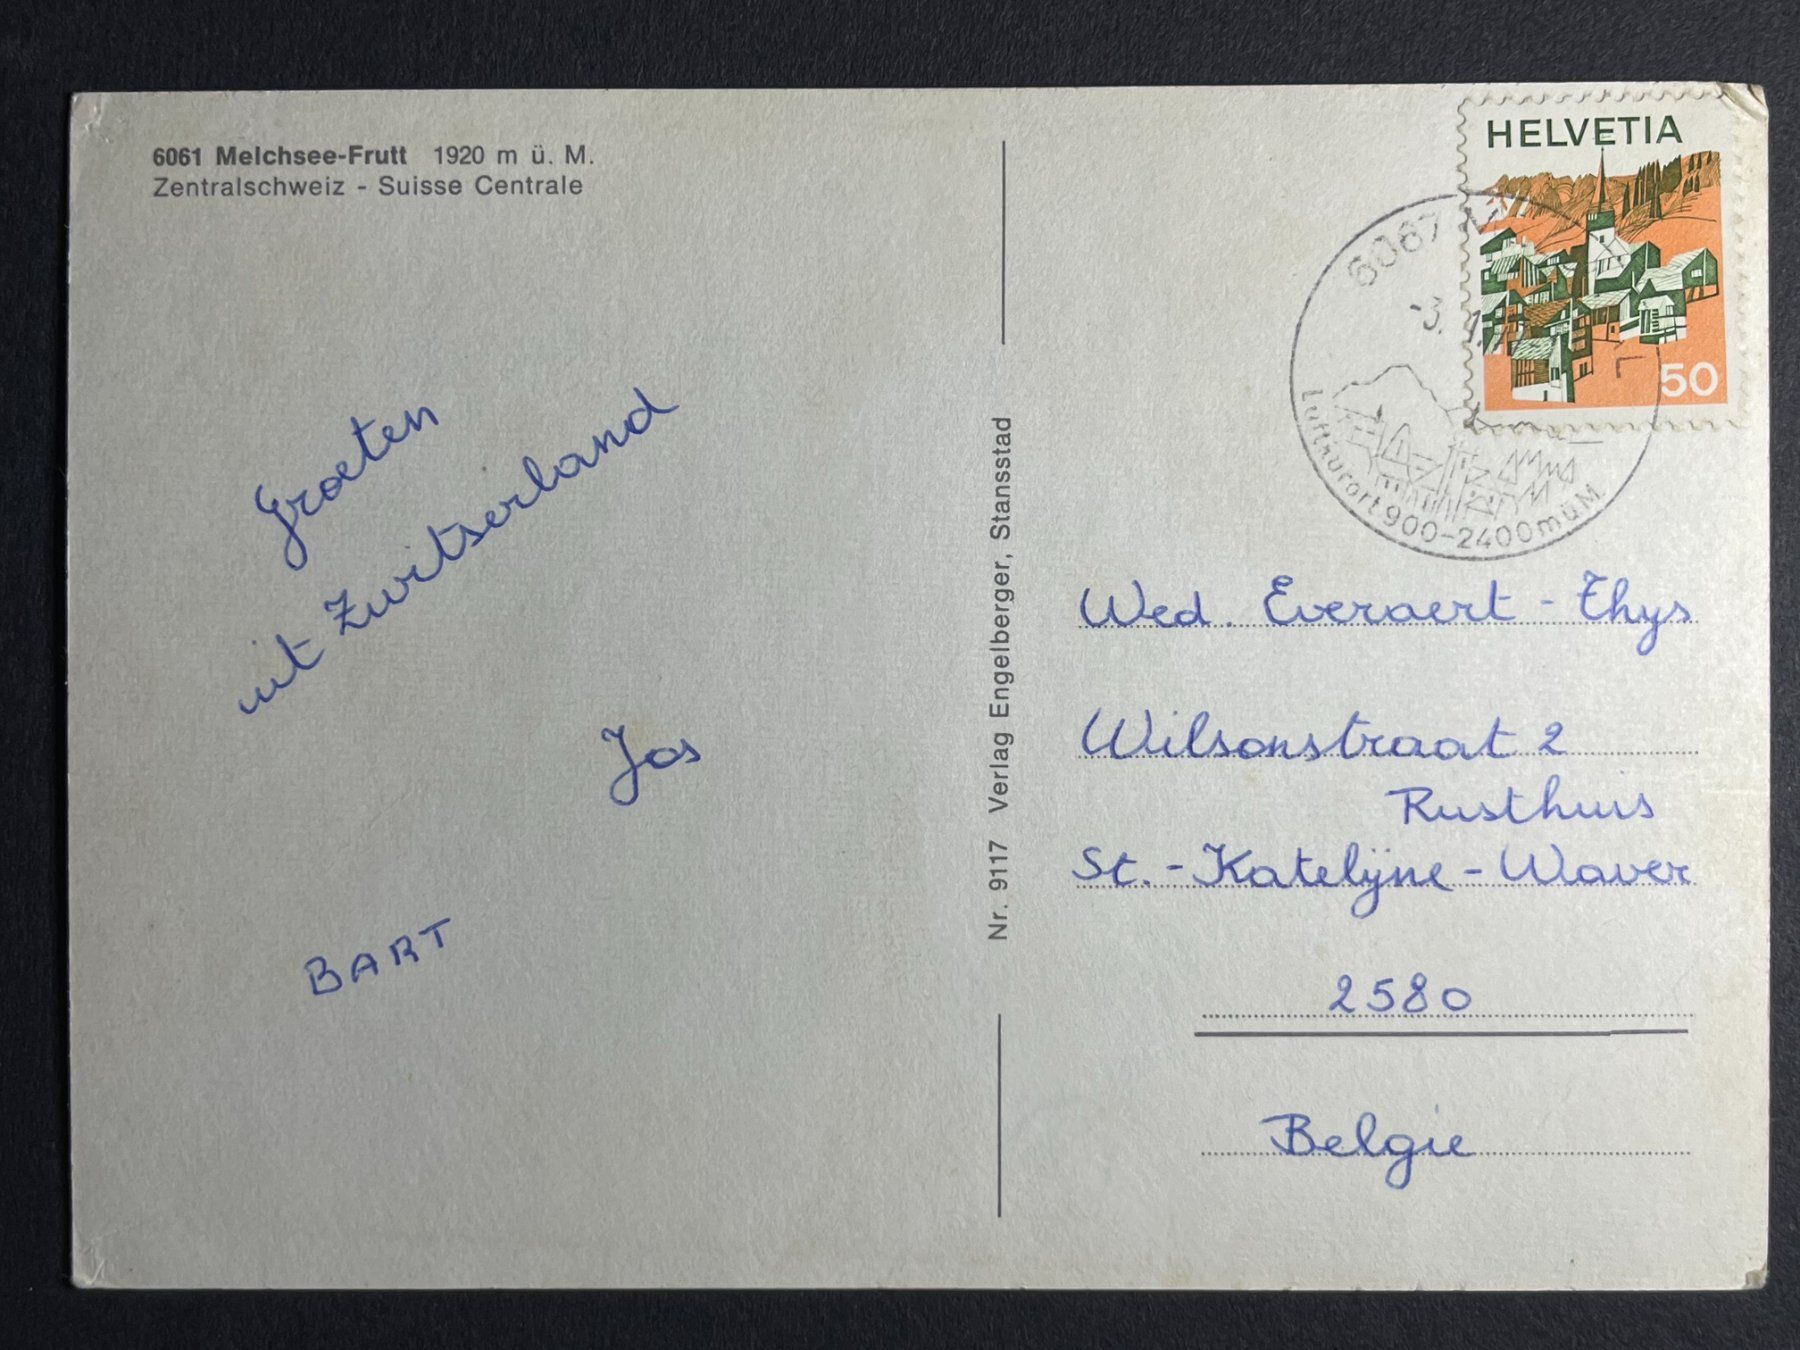 6061 Melchsee-Frutt 1920 m ü. M.
Zentralschweiz - Suisse Centrale
Groeten
uit Zwitserland
Jos
BART
Nr. 9117 Verlag Engelberger, Stansstad
HELVETIA
50
6067
3.
Luftkurort 900-2400 müM.
Wed. Everaert - Thys
Wilsonstraat 2
Rusthuis
St.-Katelijne-Waver
2580
Belgie